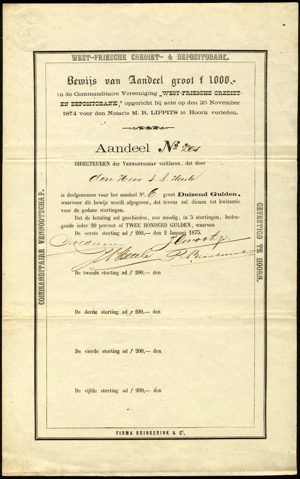 WEST-FRIESCHE CREDIET- & DEPOSITOBANK.
Bewijs van Aandeel groot f 1000,-
in de Commanditaire Vereeniging „WEST-FRIESCHE CREDIET-
EN DEPOSITOBANK," opgericht bij acte op den 20 November
1874 voor den Notaris M. R. LIPPITS te Hoorn verleden.
Aandeel No
DIRECTEUREN der Vennootschap verklaren, dat door
den Heer
is deelgenomen voor het aandeel No. 6 groot Duizend Gulden,
waarvoor dit bewijs wordt afgegeven, dat tevens zal dienen tot kwitantie
voor de gedane stortingen.
Dat de betaling zal geschieden, zoo noodig, in 5 stortingen, bedra-
gende ieder 20 percent of TWEE HONDERD GULDEN, waarvan
De eerste storting ad f 200,— den 2 Januarij 1875.
De tweede storting ad f 200,— den
De derde storting ad f 200,— den
De vierde storting ad f 200,— den
De vijfde storting ad f 200,— den
COMMANDITAIRE VENNOOTSCHAP.
GEVESTIGD TE HOORN.
FIRMA BEINKERINK & Co.